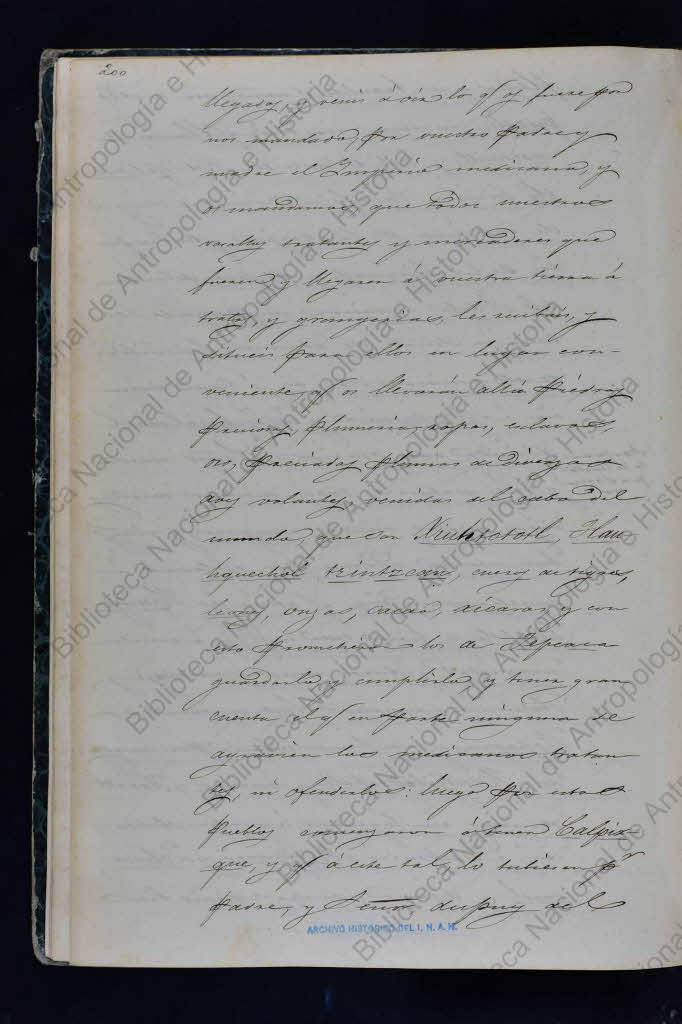 200
llegados, y venis á oir lo q.e os fuere por
nos mandado, por vuestro Padre y
madre el Imperio mexicano, y
os mandamos, que todos nuestros
vasallos tratantes y mercaderes que
fueren y llegaren á vuestra tierra á
tratos, y grangerias, les recibais, y
situeis para ellos un lugar con-
veniente q.e os llevarán allá Piedras
Preciosas, Plumeria, ropas, esclavos,
oro, Preciadas Plumas de diversas
aves volantes, venidas del cabo del
mundo, que son Xiuhtototl, Tlau-
hquechol tzintzcan, cueros de tigres,
leones, onzas, cacao, xicaras, y con
esto Prometieron los de Tepeaca
guardarlo y cumplirlo y tener gran
cuenta el q.e en Parte ninguna se
agravien los mexicanos tratan
tes, ni ofenderlos: luego Por estos
Pueblos comenzaron á tener Calpix-
que, y q.e á este tal lo tubiesen p.r
Padre, y Señor, despues del
ARCHIVO HISTORICO DEL I. N. A. H.
Biblioteca Nacional de Antropología e Historia